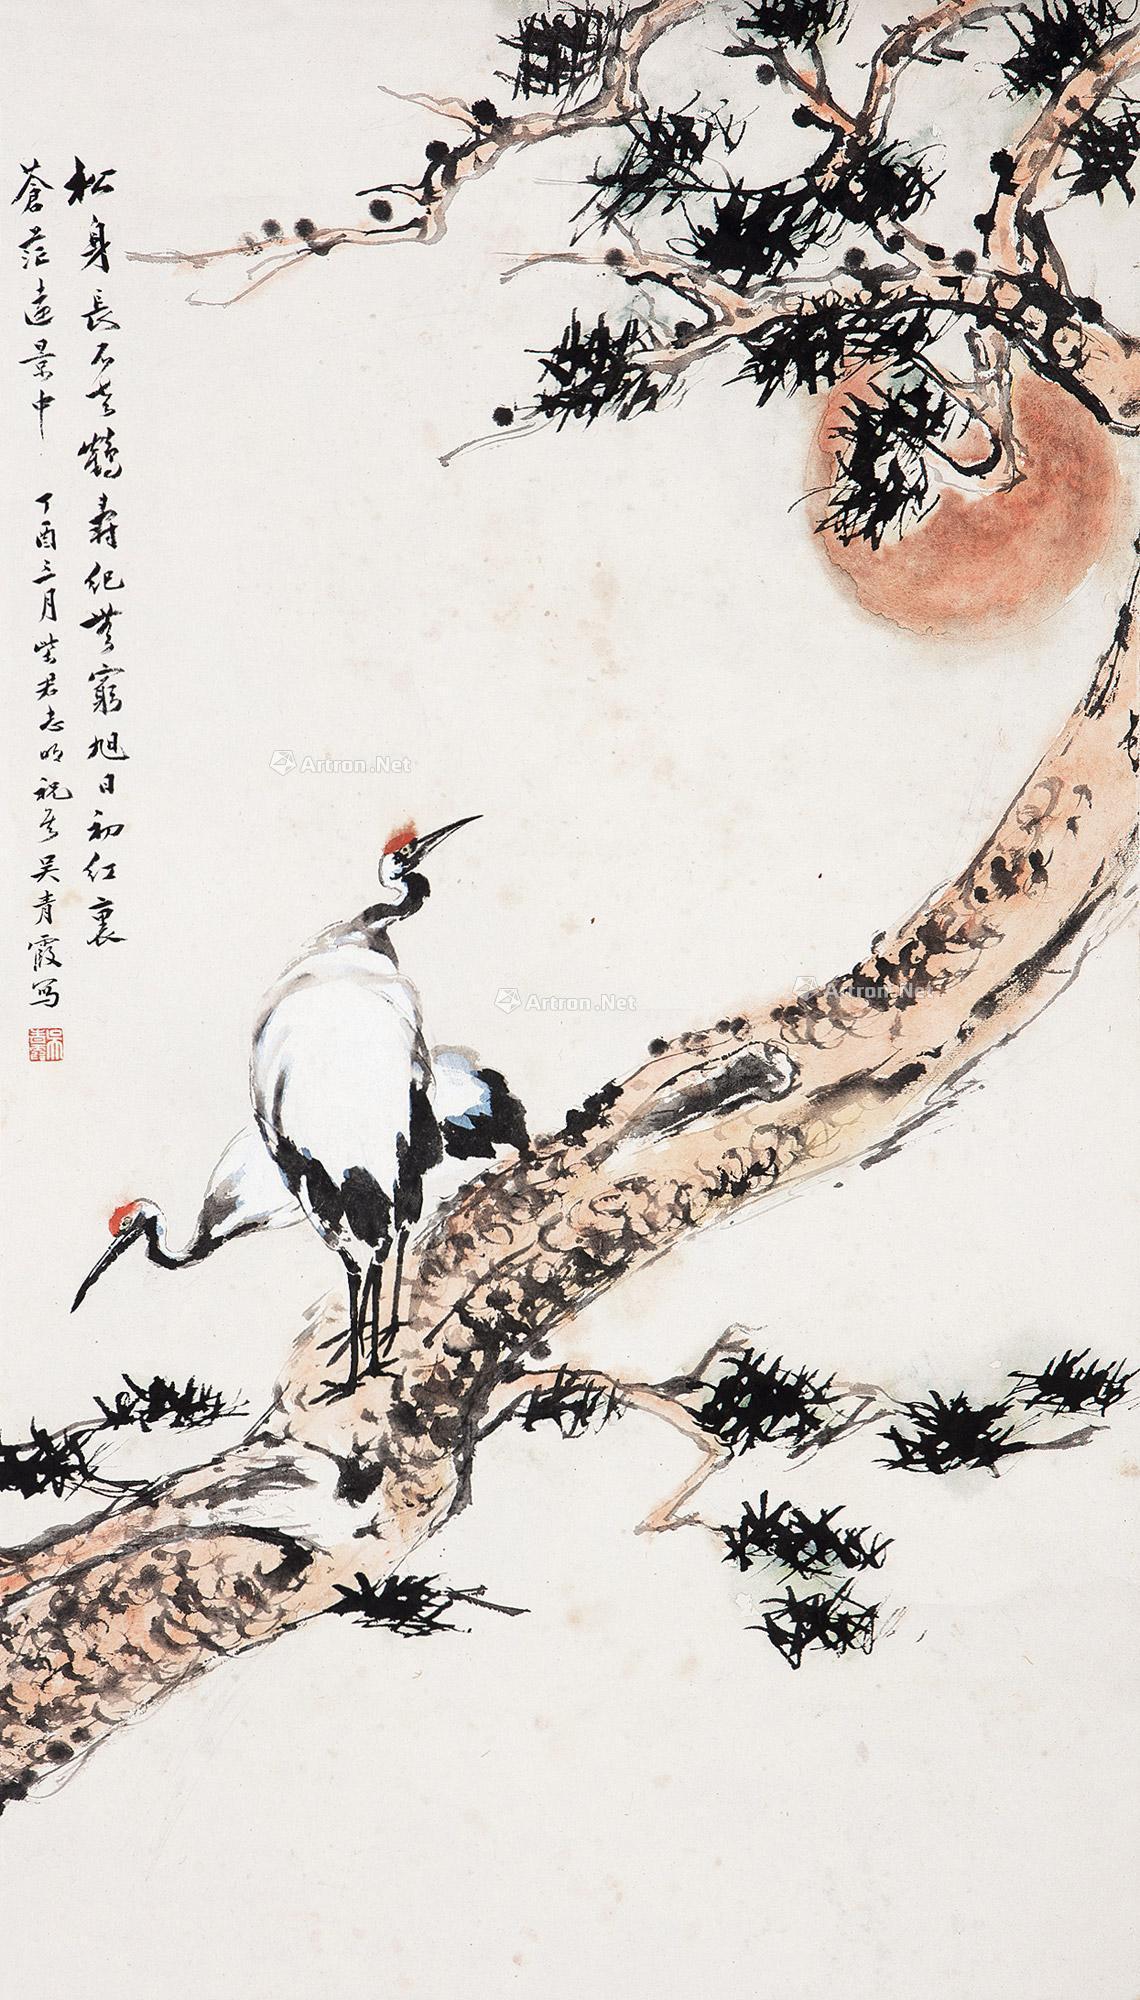 松身長不老鶴壽纪無窮旭日初红裏
蒼茫遠景中 丁酉三月 君志 祝 吴青霞写
Artron.Net
Artron.Net
Artron.Net